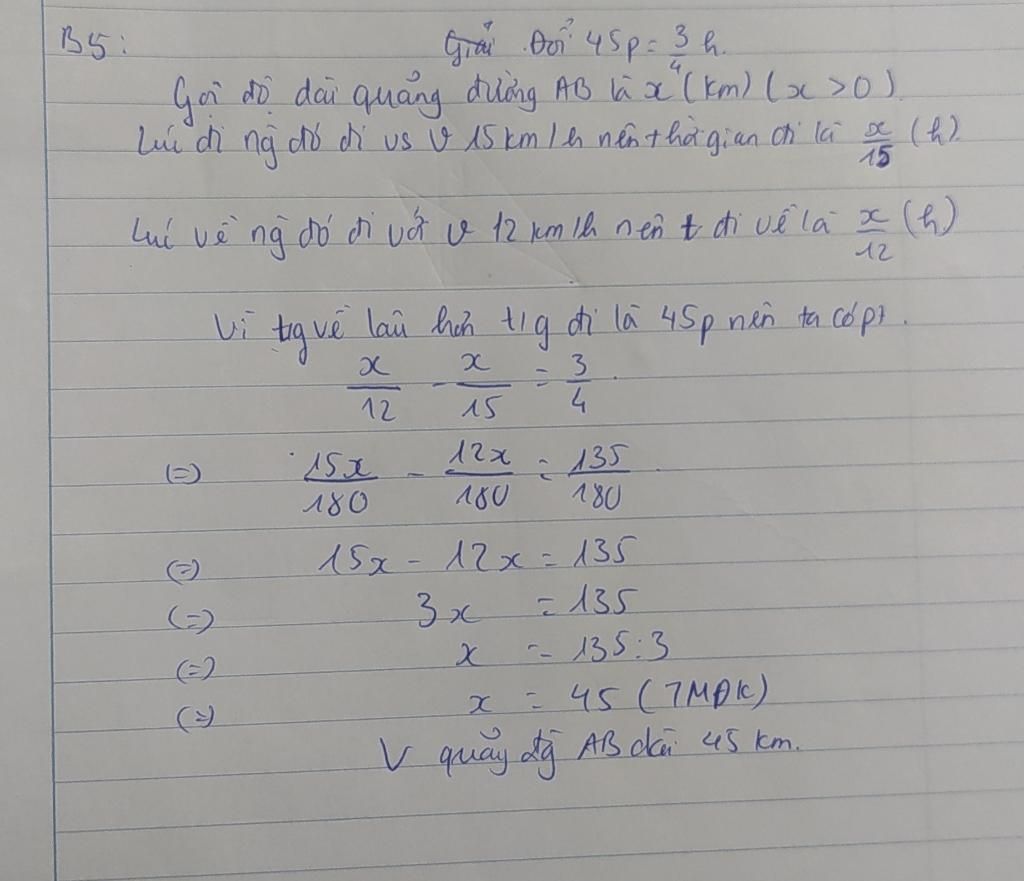 B5: Giải. Đổi 45p = 3/4 h.
Gọi độ dài quảng đường AB là x (km) (x > 0)
Lúc đi ng đó đi vs v 15 km/h nên thời gian đi là x/15 (h).
Lúc về ng đó đi với v 12 km/h nên t đi về là x/12 (h)
Vì tg về lâu hơn t/g đi là 45p nên ta có pt.
x/12 - x/15 = 3/4.
(=) 15x/180 - 12x/180 = 135/180
(=) 15x - 12x = 135
(=) 3x = 135
(=) x = 135:3
(=) x = 45 (TMĐK)
V quảy đg AB dài 45 km.